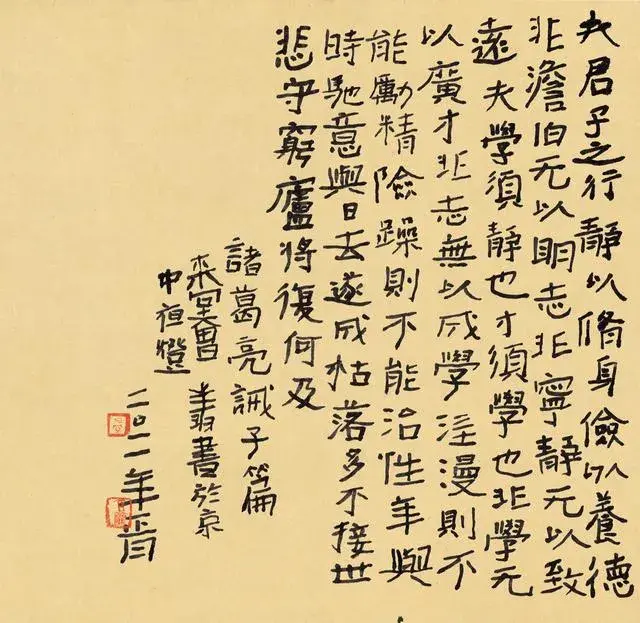 夫君子之行靜以脩身儉以養德
非澹泊无以明志非寧靜无以致
遠夫學須靜也才須學也非學无
以廣才非志無以成學淫漫則不
能勵精險躁則不能治性年與
時馳意與日去遂成枯落多不接世
悲守窮廬將復何及
諸葛亮誡子篇
堂曾翔書於京
中
二〇一一年正月